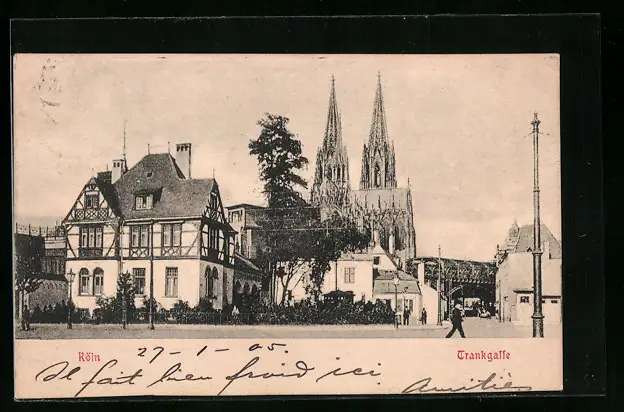 Köln
27-1-05.
Trankgasse
Il fait bien froid ici.
Amitiés